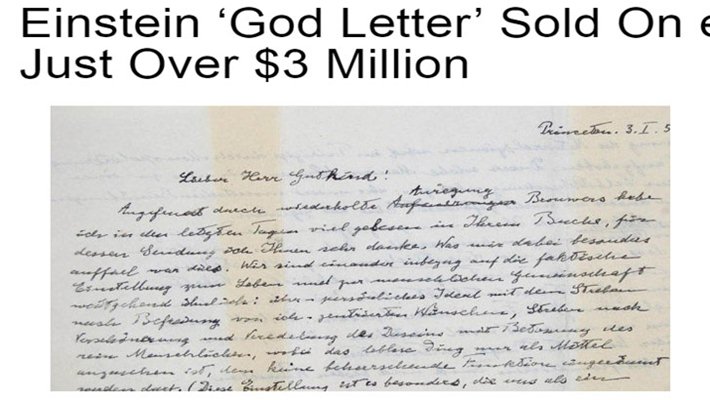 Einstein ‘God Letter’ Sold On e
Just Over $3 Million
Princeton. 3. I. 5
Lieber Herr Gutkind!
Anregung
Angefeuert durch wiederholte Aufforderungen Brouwers habe
ich in den letzten Tagen viel gelesen in Ihrem Buche, für
dessen Sendung ich Ihnen sehr danke. Was mir dabei besonders
auffiel war dies. Wir sind einander inbezug auf die faktische
Einstellung zum Leben und zur menschlichen Gemeinschaft
weitgehend ähnlich: über-persönliches Ideal mit dem Streben
nach Befreiung von ich-zentrierten Wünschen, Streben nach
Verschönerung und Veredelung des Daseins mit Betonung des
rein Menschlichen, wobei das leblose Ding nur als Mittel
anzusehen ist, dem keine beherrschende Funktion eingeräumt
werden darf. (Diese Einstellung ist es besonders, die uns als ein